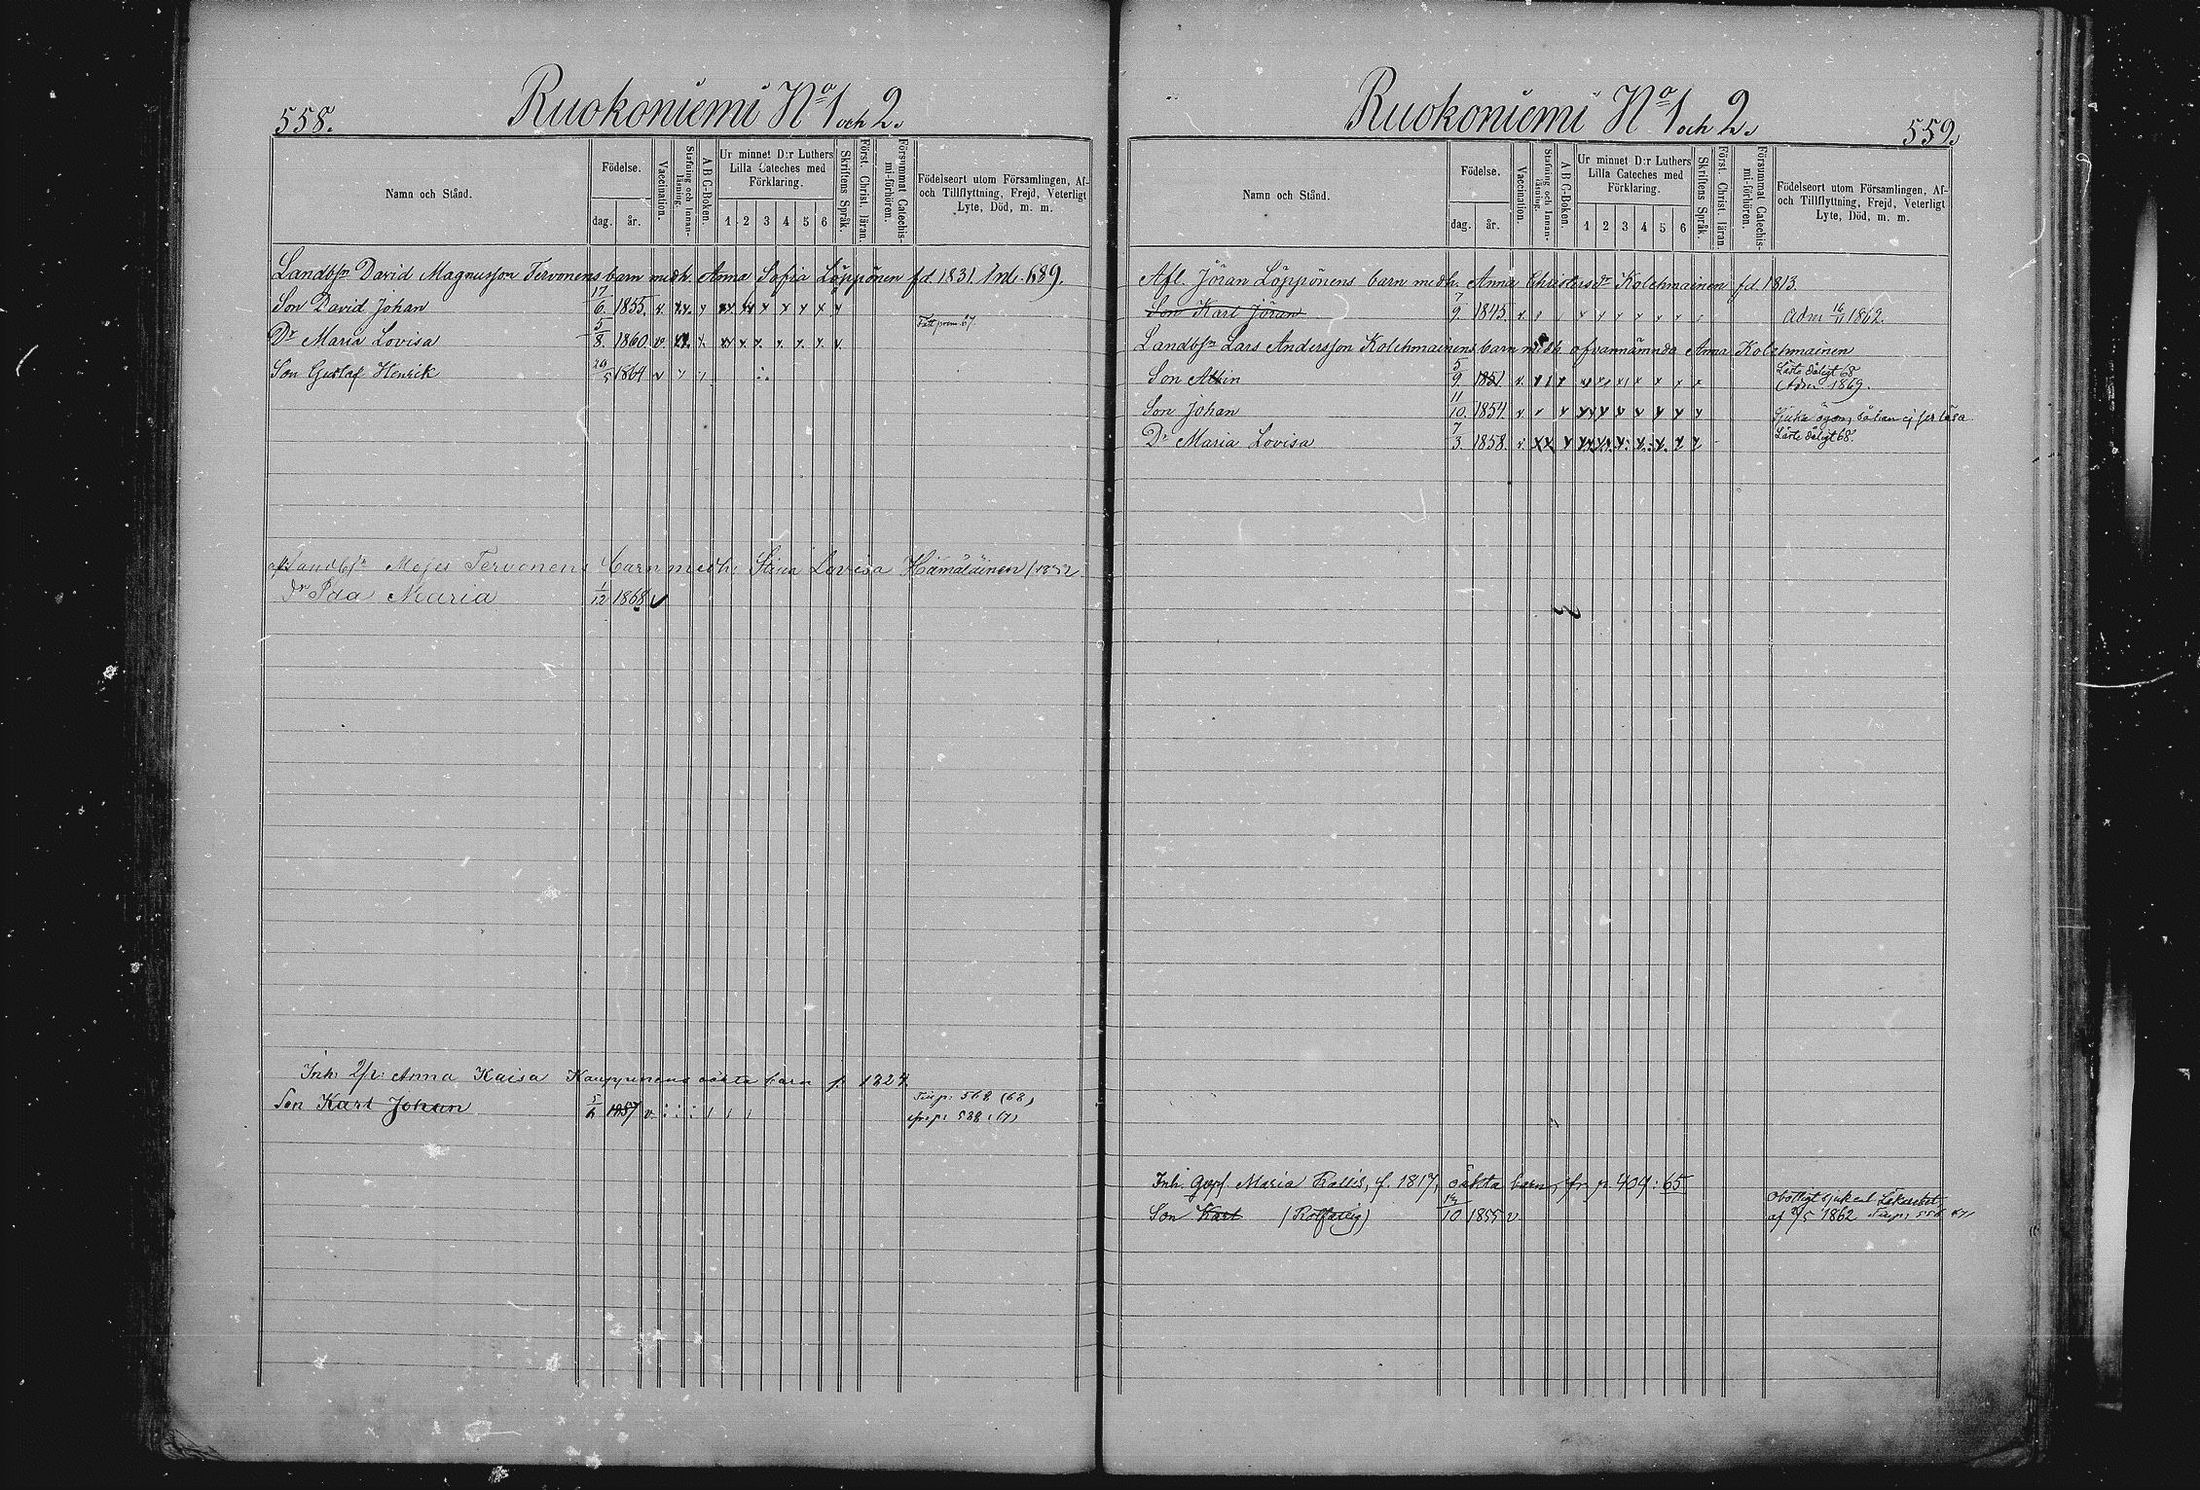 558.
Ruokoniemi No 1 och 2.
Namn och Stånd.
Födelse.
dag.
år.
Vaccination.
Stafning och Innan-läsning.
A B C-Boken.
Ur minnet D:r Luthers Lilla Cateches med Förklaring.
1 2 3 4 5 6
Skriftens Språk.
Först. Christ. läran.
Försummat Catechis-mi-förhören.
Födelseort utom Församlingen, Af- och Tillflyttning, Frejd, Veterligt Lyte, Död, m. m.
Landb:n David Magnusson Tervonens barn medh. Anna Sofia Löppönen fd. 1831.
Son David Johan 17/6. 1855.
Dr Maria Lovisa 5/8. 1860.
Son Gustaf Henrik 1864
Landb:n Mojes Tervonens barn medh. Lovisa Hämäläinen
Dr Ida Maria 1/12 1868
Inh. Anna Kaisa Kauppinens oäkta barn f. 1827
Son Karl Johan 5/6 1857
568 (68)
588 (67)
Ruokoniemi No 1 och 2.
559.
Namn och Stånd.
Födelse.
dag.
år.
Vaccination.
Stafning och Innan-läsning.
A B C-Boken.
Ur minnet D:r Luthers Lilla Cateches med Förklaring.
1 2 3 4 5 6
Skriftens Språk.
Först. Christ. läran
Försummat Catechis-mi-förhören.
Födelseort utom Församlingen, Af- och Tillflyttning, Frejd, Veterligt Lyte, Död, m. m.
Afl. Jöran Löppönens barn medh. Anna Christersdr Kolehmainen fd. 1813.
Son Karl Jöran 7/9 1845. Adm 16/11 1862.
Landb:n Lars Andersson Kolehmainens barn medh ofvannämnda Anna Kolehmainen
Son 5/9 1851 Läste dåligt 68
Adm. 1869.
Son Johan 11/10. 1854 Sjuka ögon, ej läsa
Dr Maria Lovisa 7/3. 1858. Läste dåligt 68.
Inh. Maria f. 1817, oäkta barn, fr. p. 404: 65
Son Karl 10 1855 1862